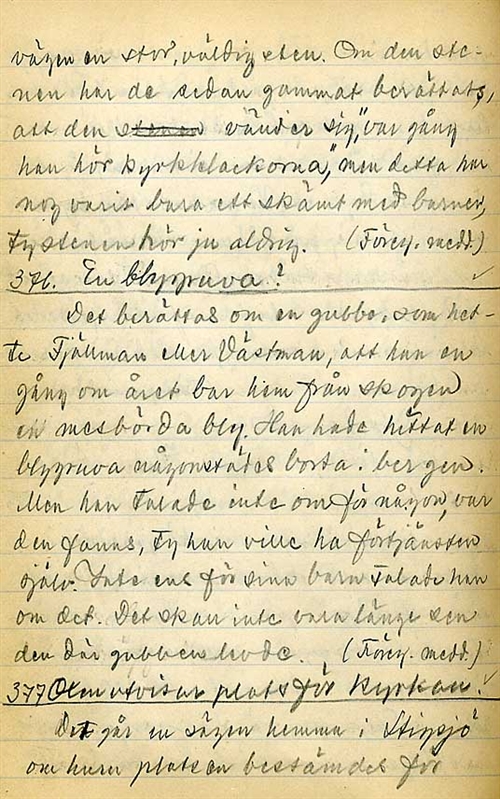 vägen en stor, väldig sten. Om den ste-
nen har de sedan gammat berättats,
att den stenen vänder sig, "var gång
han hör kyrkklockorna," men detta har
nog varit bara ett skämt med barnen,
ty stenen hör ju aldrig. (Förey. medd.)
376. En blygruva?
Det berättas om en gubbe, som het-
te Fjällman eller Västman, att han en
gång om året bar hem från skogen
en mesbörda bly. Han hade hittat en
blygruva någonstädes borta i bergen.
Men han talade inte om för någon, var
den fanns, ty han ville ha förtjänsten
själv. Inte ens för sina barn talade han
om det. Det skall inte vara länge sen
den där gubben levde. (Förey. medd.)
377 Oxen utvisar plats för kyrkan.
Det går en sägen hemma i Stigsjö
om huru platsen bestämdes för